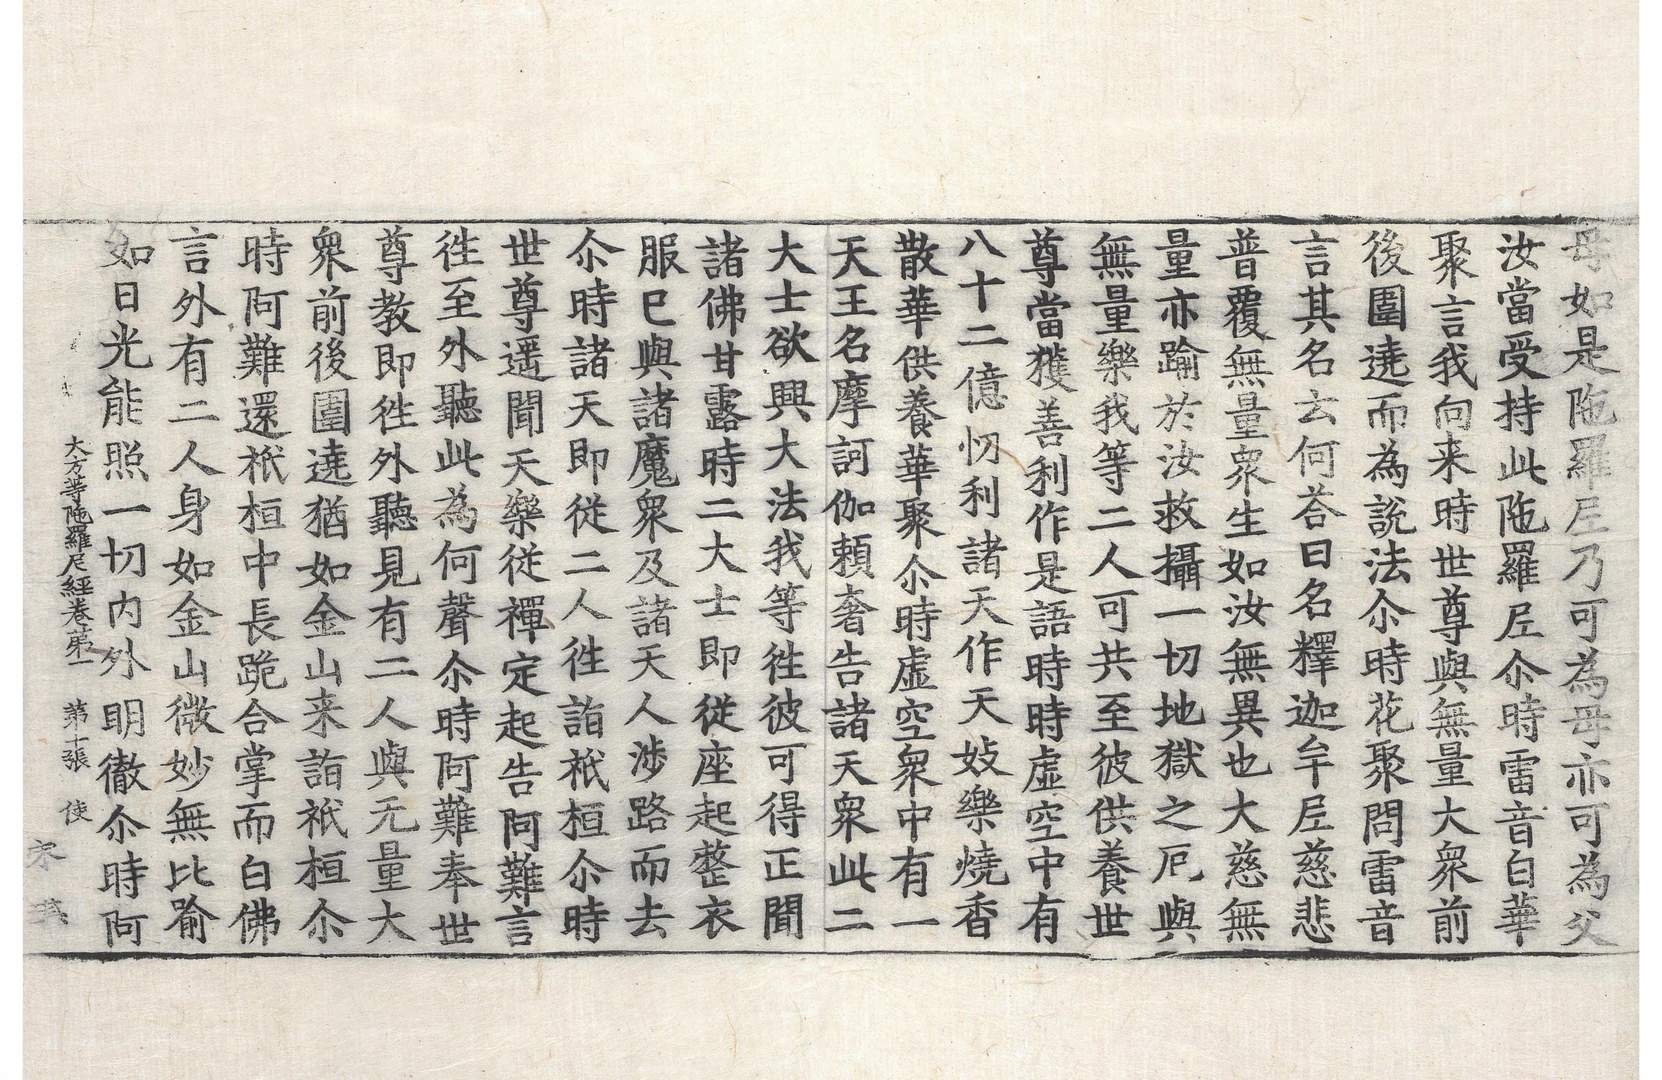 母如是陁羅尼乃可為母亦可為父
汝當受持此陁羅尼尒時雷音白華
聚言我向来時世尊與無量大衆前
後圍遶而為說法尒時花聚問雷音
言其名云何荅曰名釋迦牟尼慈悲
普覆無量衆生如汝無異也大慈無
量亦踰於汝救攝一切地獄之厄與
無量樂我等二人可共至彼供養世
尊當獲善利作是語時時虛空中有
八十二億忉利諸天作天妓樂燒香
散華供養華聚尒時虛空衆中有一
天王名摩訶伽頼奢告諸天衆此二
大士欲興大法我等徃彼可得正聞
諸佛甘露時二大士即從座起整衣
服已與諸魔衆及諸天人涉路而去
尒時諸天即從二人徃詣祇桓尒時
世尊遥聞天樂從禪定起告阿難言
徃至外聽此為何聲尒時阿難奉世
尊教即徃外聽見有二人與无量大
衆前後圍遶猶如金山来詣祇桓尒
時阿難還祇桓中長跪合掌而白佛
言外有二人身如金山微妙無比踰
如日光能照一切内外明徹尒時阿
大方等陁羅尼經卷第一 第十張 使